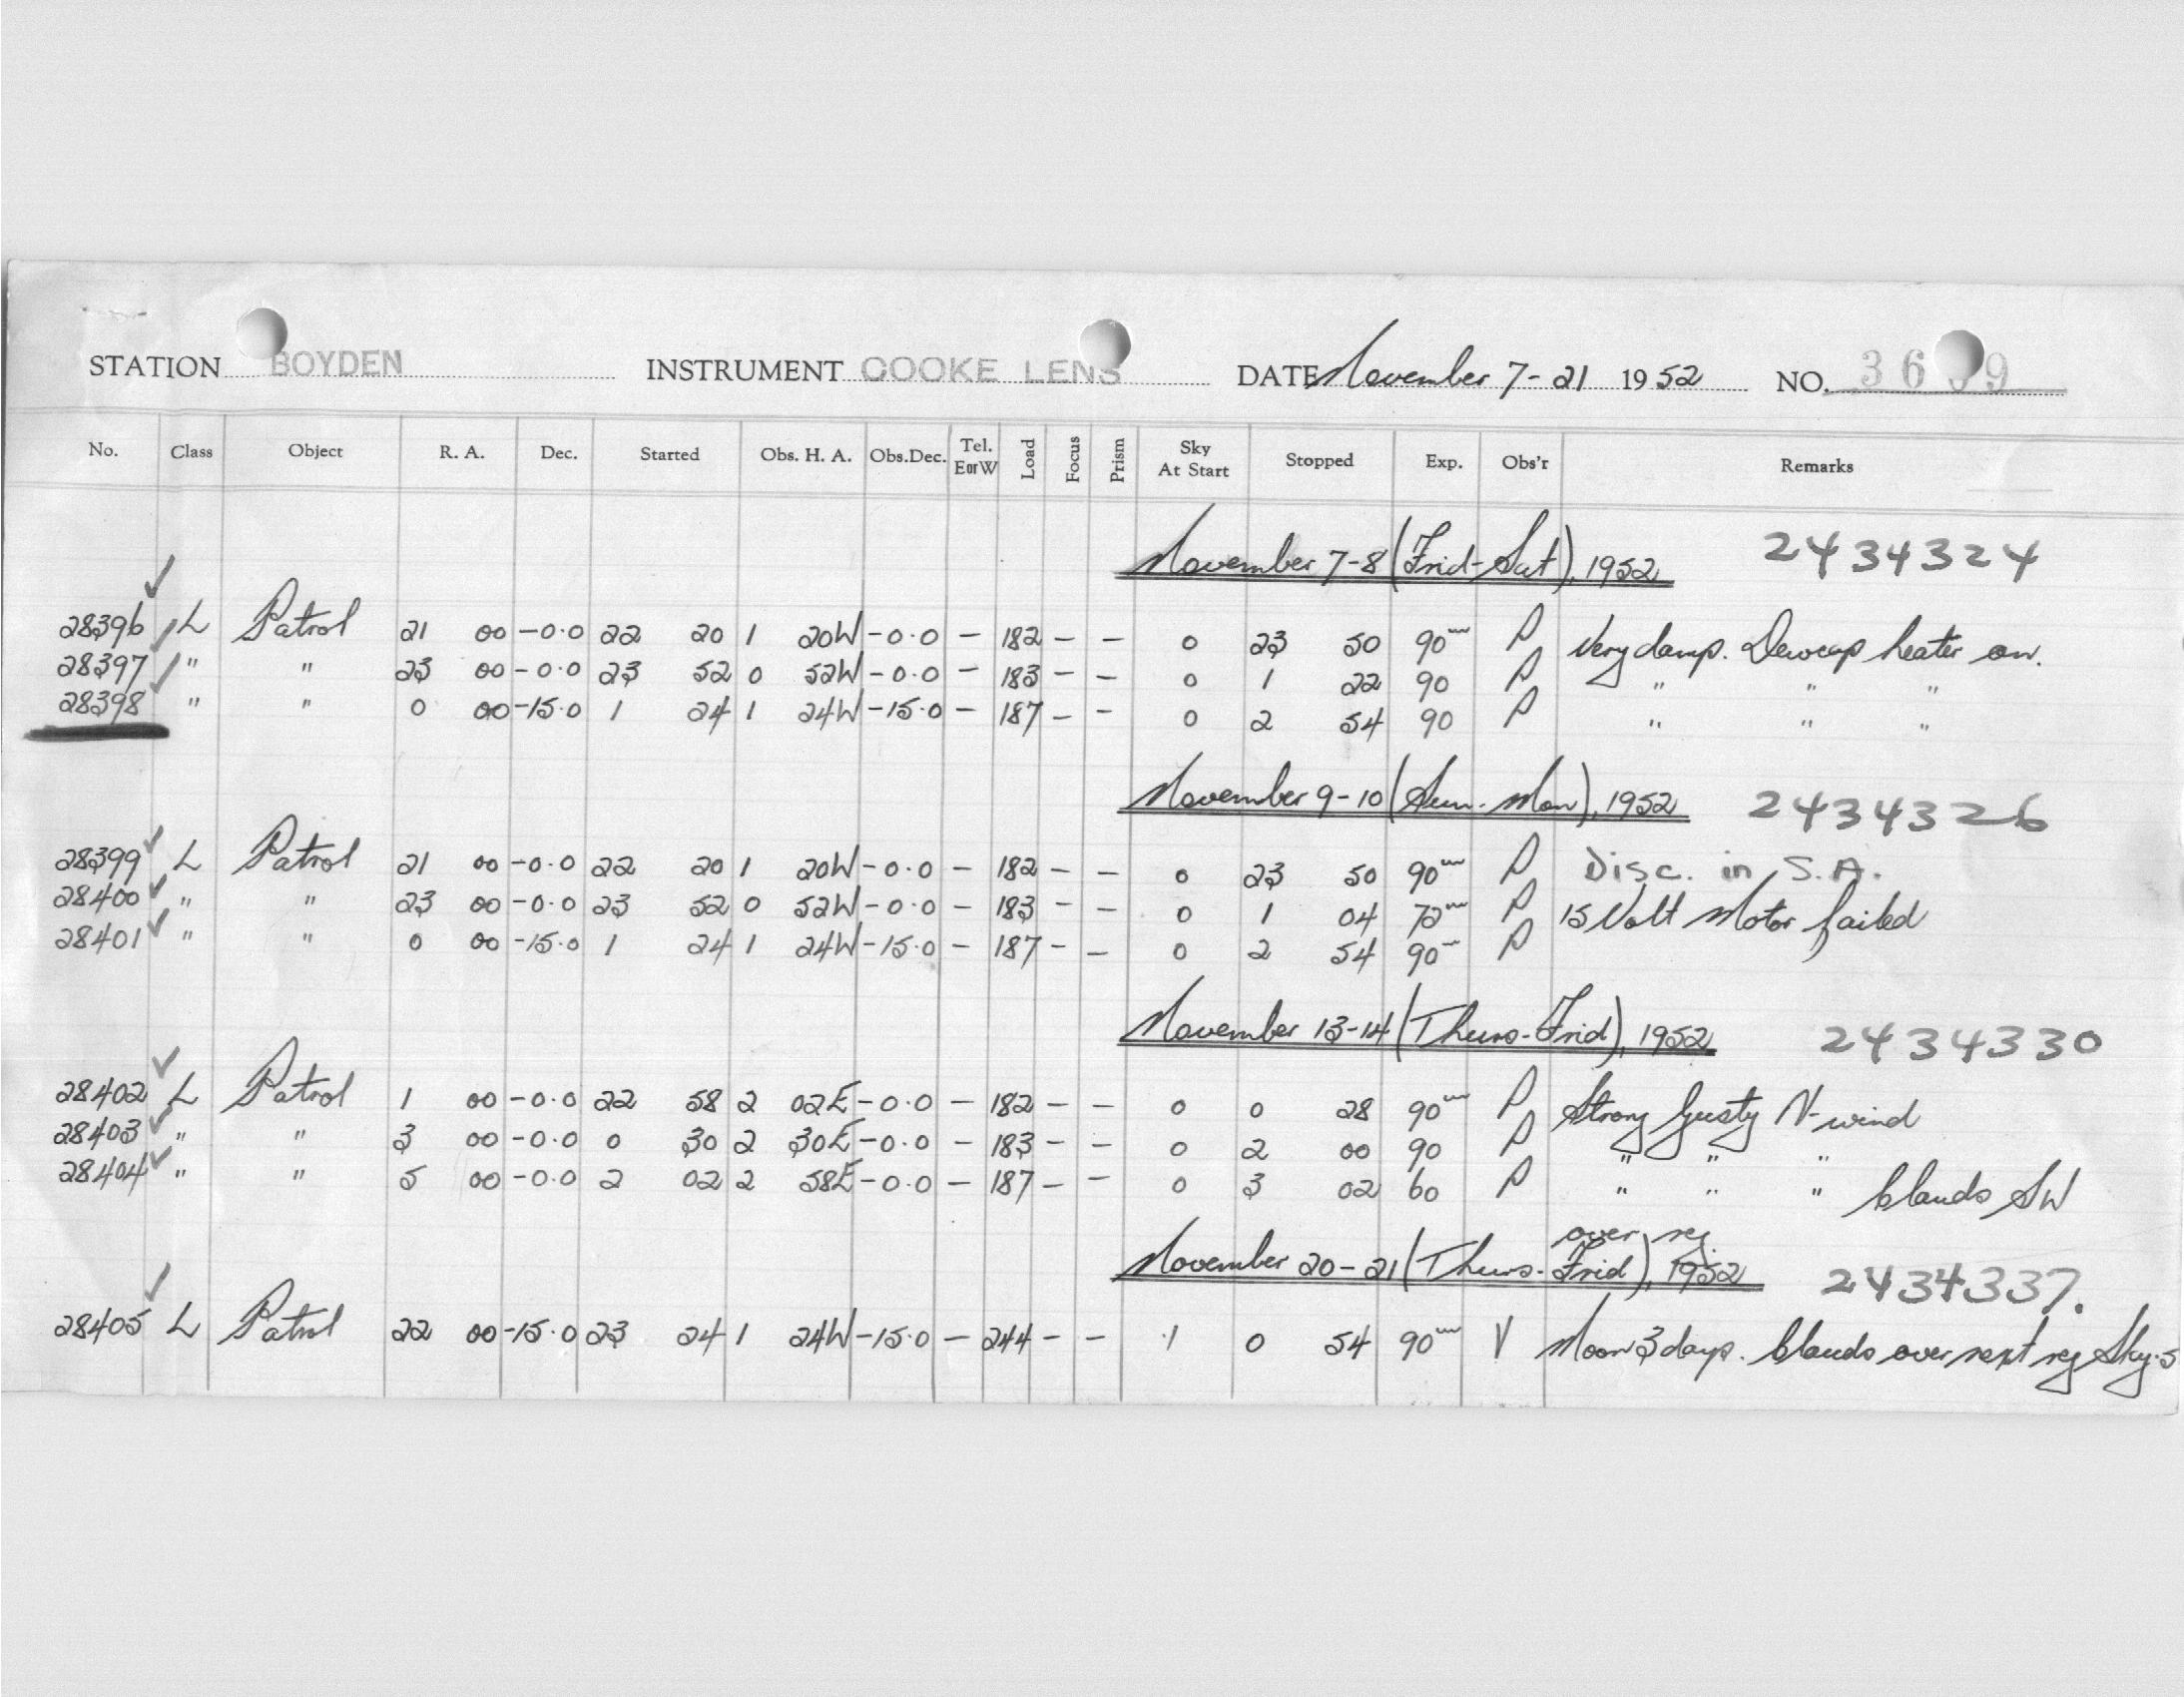 STATION BOYDEN INSTRUMENT COOKE LENS DATE November 7-21 1952 NO. 36 9
No. Class Object R. A. Dec. Started Obs. H. A. Obs.Dec. Tel. E or W Load Focus Prism Sky At Start Stopped Exp. Obs'r Remarks
November 7-8 (Frid-Sat), 1952 2434324
28396 L Patrol 21 00 -0.0 22 20 1 20W -0.0 - 182 - - 0 23 50 90m P Very damp. Dewcap heater on.
28397 " " 23 00 -0.0 23 52 0 52W -0.0 - 183 - - 0 1 22 90 P " " "
28398 " " 0 00 -15.0 1 24 1 24W -15.0 - 187 - - 0 2 54 90 P " " "
November 9-10 (Sun-Mon), 1952 2434326
28399 L Patrol 21 00 -0.0 22 20 1 20W -0.0 - 182 - - 0 23 50 90m P Disc. in S.A.
28400 " " 23 00 -0.0 23 52 0 52W -0.0 - 183 - - 0 1 04 72m P 15 Volt Motor failed
28401 " " 0 00 -15.0 1 24 1 24W -15.0 - 187 - - 0 2 54 90m P
November 13-14 (Thurs-Frid), 1952 2434330
28402 L Patrol 1 00 -0.0 22 58 2 02E -0.0 - 182 - - 0 0 28 90m P Strong Gusty N-wind
28403 " " 3 00 -0.0 0 30 2 30E -0.0 - 183 - - 0 2 00 90 P " " "
28404 " " 5 00 -0.0 2 02 2 58E -0.0 - 187 - - 0 3 02 60 P " " " Clouds SW
over reg.
November 20-21 (Thurs-Frid), 1952 2434337.
28405 L Patrol 22 00 -15.0 23 24 1 24W -15.0 - 244 - - 1 0 54 90m V Moon 3 days. Clouds over next reg Sky.5